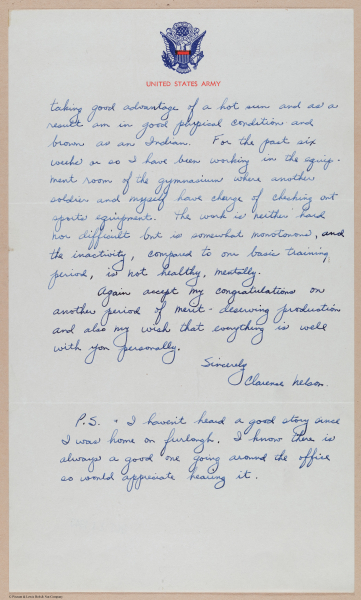 UNITED STATES ARMY
taking good advantage of a hot sun and as a
result am in good physical condition and
brown as an Indian. For the past six
weeks or so I have been working in the equip-
ment room of the gymnasium where another
soldier and myself have charge of checking out
sports equipment. The work is neither hard
nor difficult but is somewhat monotonous, and
the inactivity, compared to our basic training
period, is not healthy, mentally.
Again accept my congratulations on
another period of merit-deserving production
and also my wish that everything is well
with you personally.
Sincerely
Clarence Nelson.
P.S. - I haven't heard a good story since
I was home on furlough. I know there is
always a good one going around the office
so would appreciate hearing it.